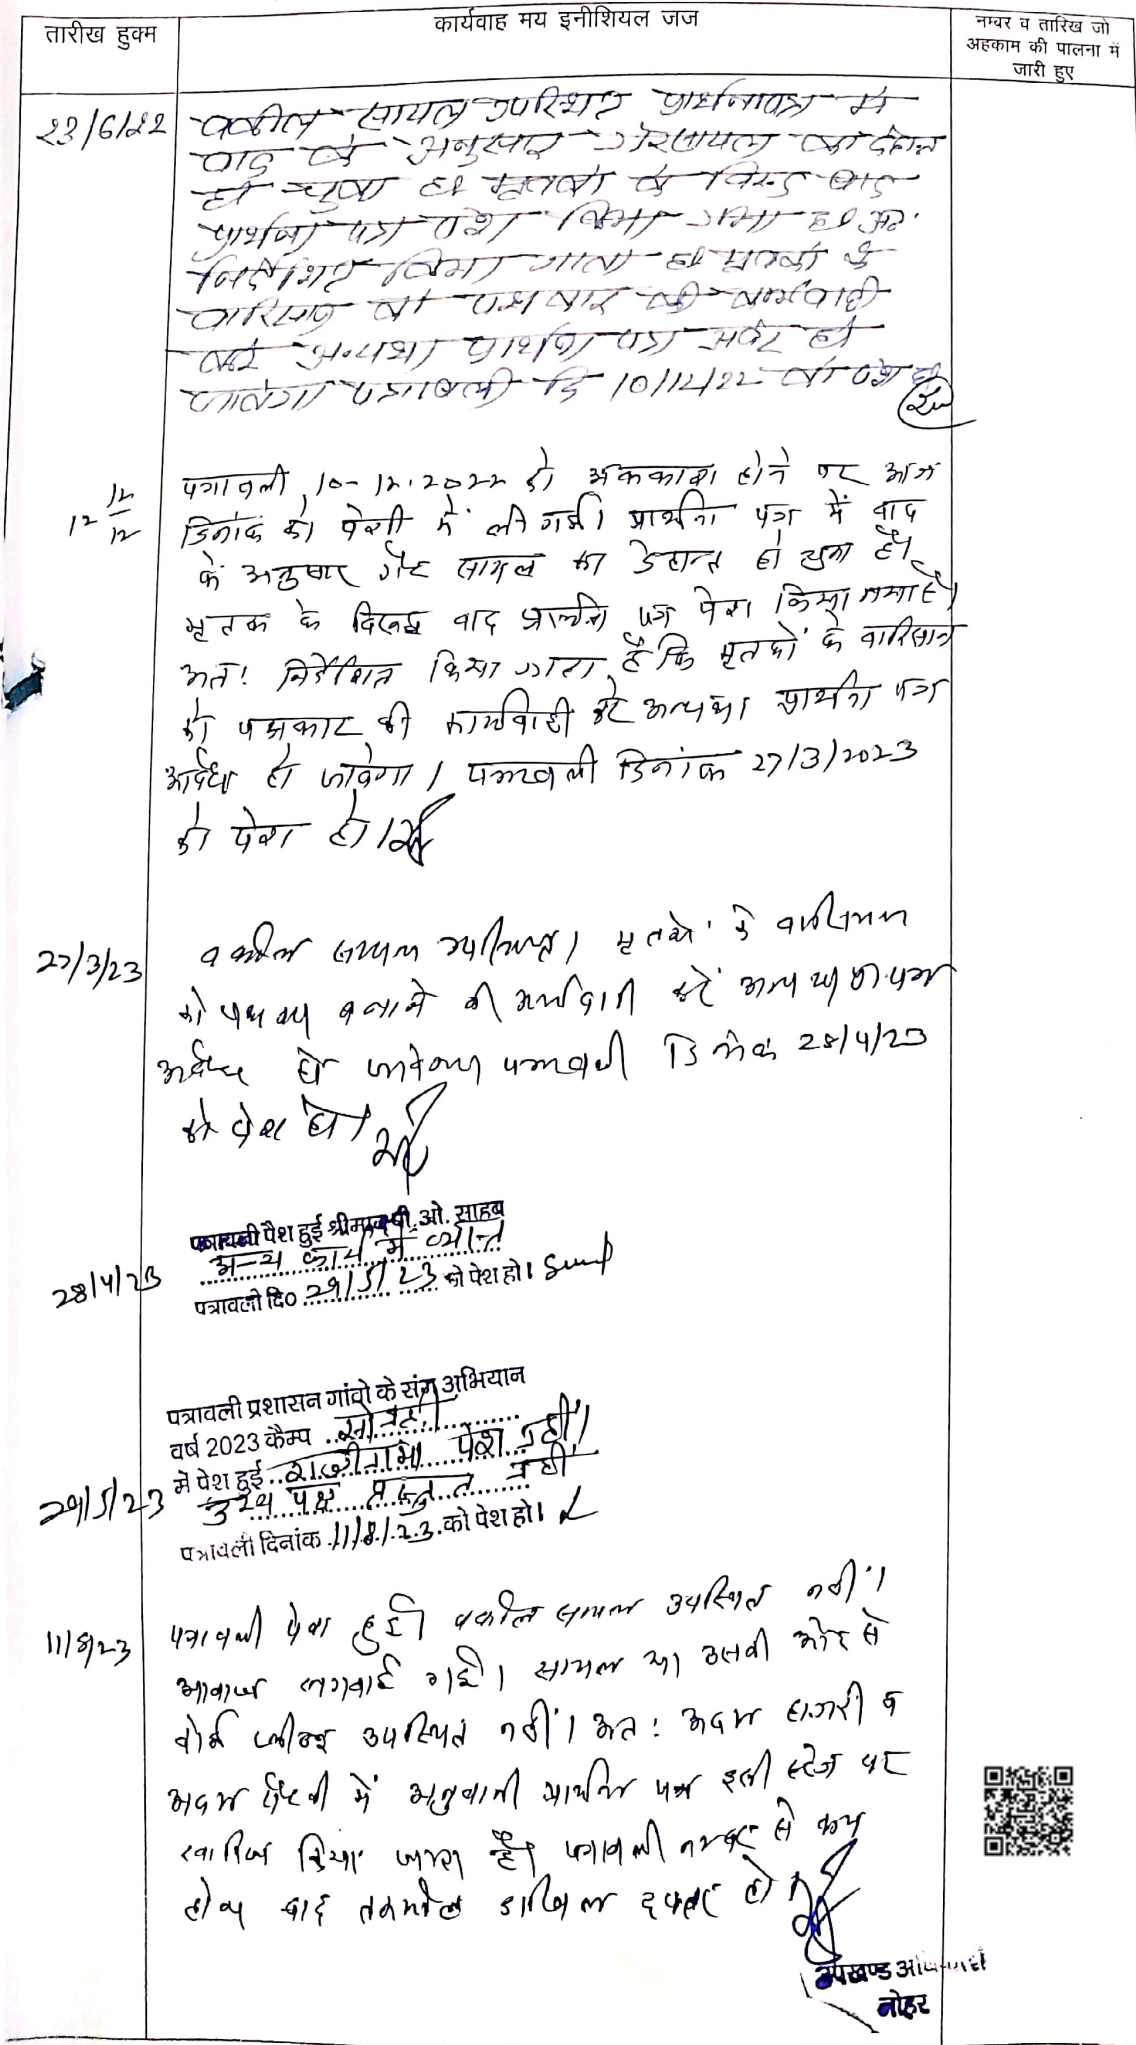 तारीख हुक्म
कार्यवाह मय इनीशियल जज
नम्बर व तारिख जो
अहकाम की पालना में
जारी हुए
23/6/22
वकील सायल उपस्थित प्रार्थनापत्र में
वाद के अनुसार गैरसायल का देहान्त
हो चुका है। मृतको के विरूद्ध वाद
प्रार्थना पत्र पेश किया गया है। अतः
निर्देशित किया जाता है। मृतको के
वारिसान को पक्षकार की कार्यवाही
करे अन्यथा प्रार्थना पत्र अबेट हो
जावेगा पत्रावली दि 10/12/22 को पेश हो
12 12/12
पत्रावली 10-12-2022 को अवकाश होने पर आज
दिनांक को पेशी में ली गई। प्रार्थना पत्र में वाद
के अनुसार गैर सायल का देहान्त हो चुका है।
मृतक के विरूद्ध वाद प्रार्थना पत्र पेश किया गया है।
अतः निर्देशित किया जाता है कि मृतकों के वारिसान
को पक्षकार की कार्यवाही करे अन्यथा प्रार्थना पत्र
हो जावेगा। पत्रावली दिनांक 27/3/2023
को पेश हो।
27/3/23
वकील सायल उपस्थित। मृतको के वारिसान
को पक्षकार बनाने की कार्यवाही करें अन्यथा प्रा. पत्र
हो जावेगा पत्रावली दिनांक 28/4/23
को पेश हो।
28/4/23
पत्रावली पैश हुई श्रीमान पी. ओ. साहब
अन्य कार्य में व्यस्त
पत्रावली दि० 29/5/23 को पेश हो।
पत्रावली प्रशासन गांवो के संग अभियान
वर्ष 2023 कैम्प
में पेश हुई राजीनामा पेश नहीं।
29/5/23
उभय पक्ष प्रस्तुत नहीं
पत्रावली दिनांक 11/8/23 को पेश हो।
11/8/23
पत्रावली पेश हुई। वकील सायल उपस्थित नहीं।
आवाज लगवाई गई। सायल या उसकी ओर से
कोई प्लीडर उपस्थित नहीं। अतः अदम हाजरी व
अदम पैरवी में प्रार्थना पत्र इसी स्टेज पर
खारिज किया जाता है। पत्रावली नम्बर से कम
होकर बाद तकमील दाखिल दफ्तर हो।
उपखण्ड अधिकारी
नोहर